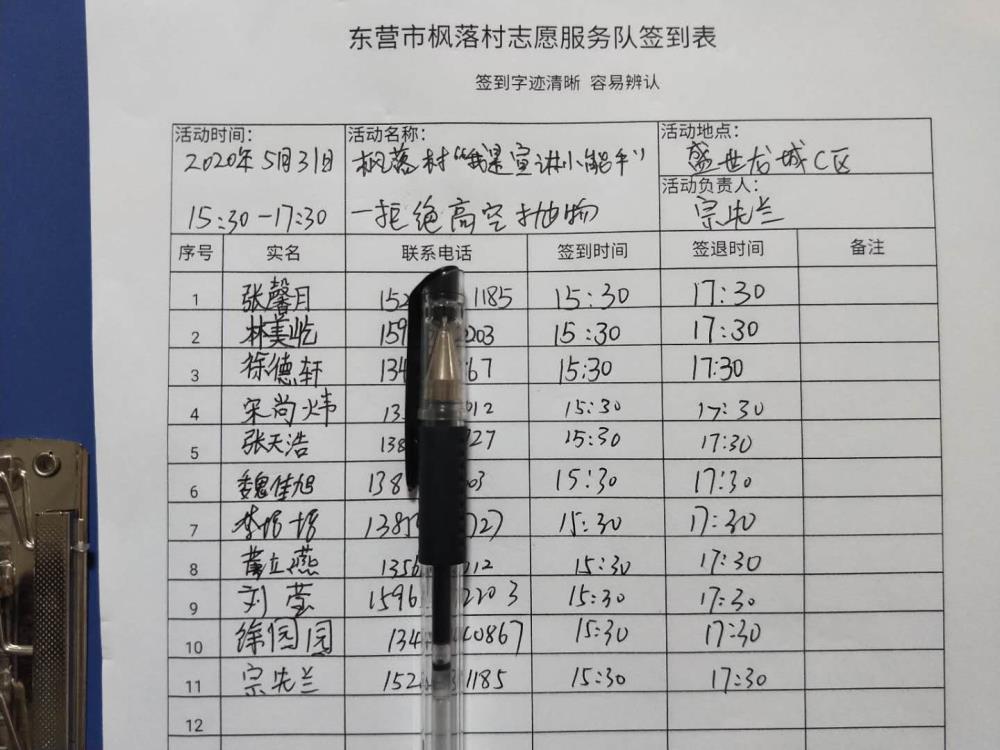 东营市枫落村志愿服务队签到表
签到字迹清晰 容易辨认
活动时间： 活动名称： 活动地点：
2020年5月31日 枫落村“我是宣讲小能手” 盛世龙城C区
活动负责人：
15:30-17:30 —拒绝高空抛物 宗先兰
序号 实名 联系电话 签到时间 签退时间 备注
1 张馨月 152 1185 15:30 17:30
2 林美屹 159 203 15:30 17:30
3 徐德轩 134 67 15:30 17:30
4 宋尚炜 13 012 15:30 17:30
5 张天浩 138 27 15:30 17:30
6 魏佳旭 138 03 15:30 17:30
7 李培培 1385 727 15:30 17:30
8 董立燕 1356 12 15:30 17:30
9 刘莹 1596 2203 15:30 17:30
10 徐园园 134 40867 15:30 17:30
11 宗先兰 152 1185 15:30 17:30
12